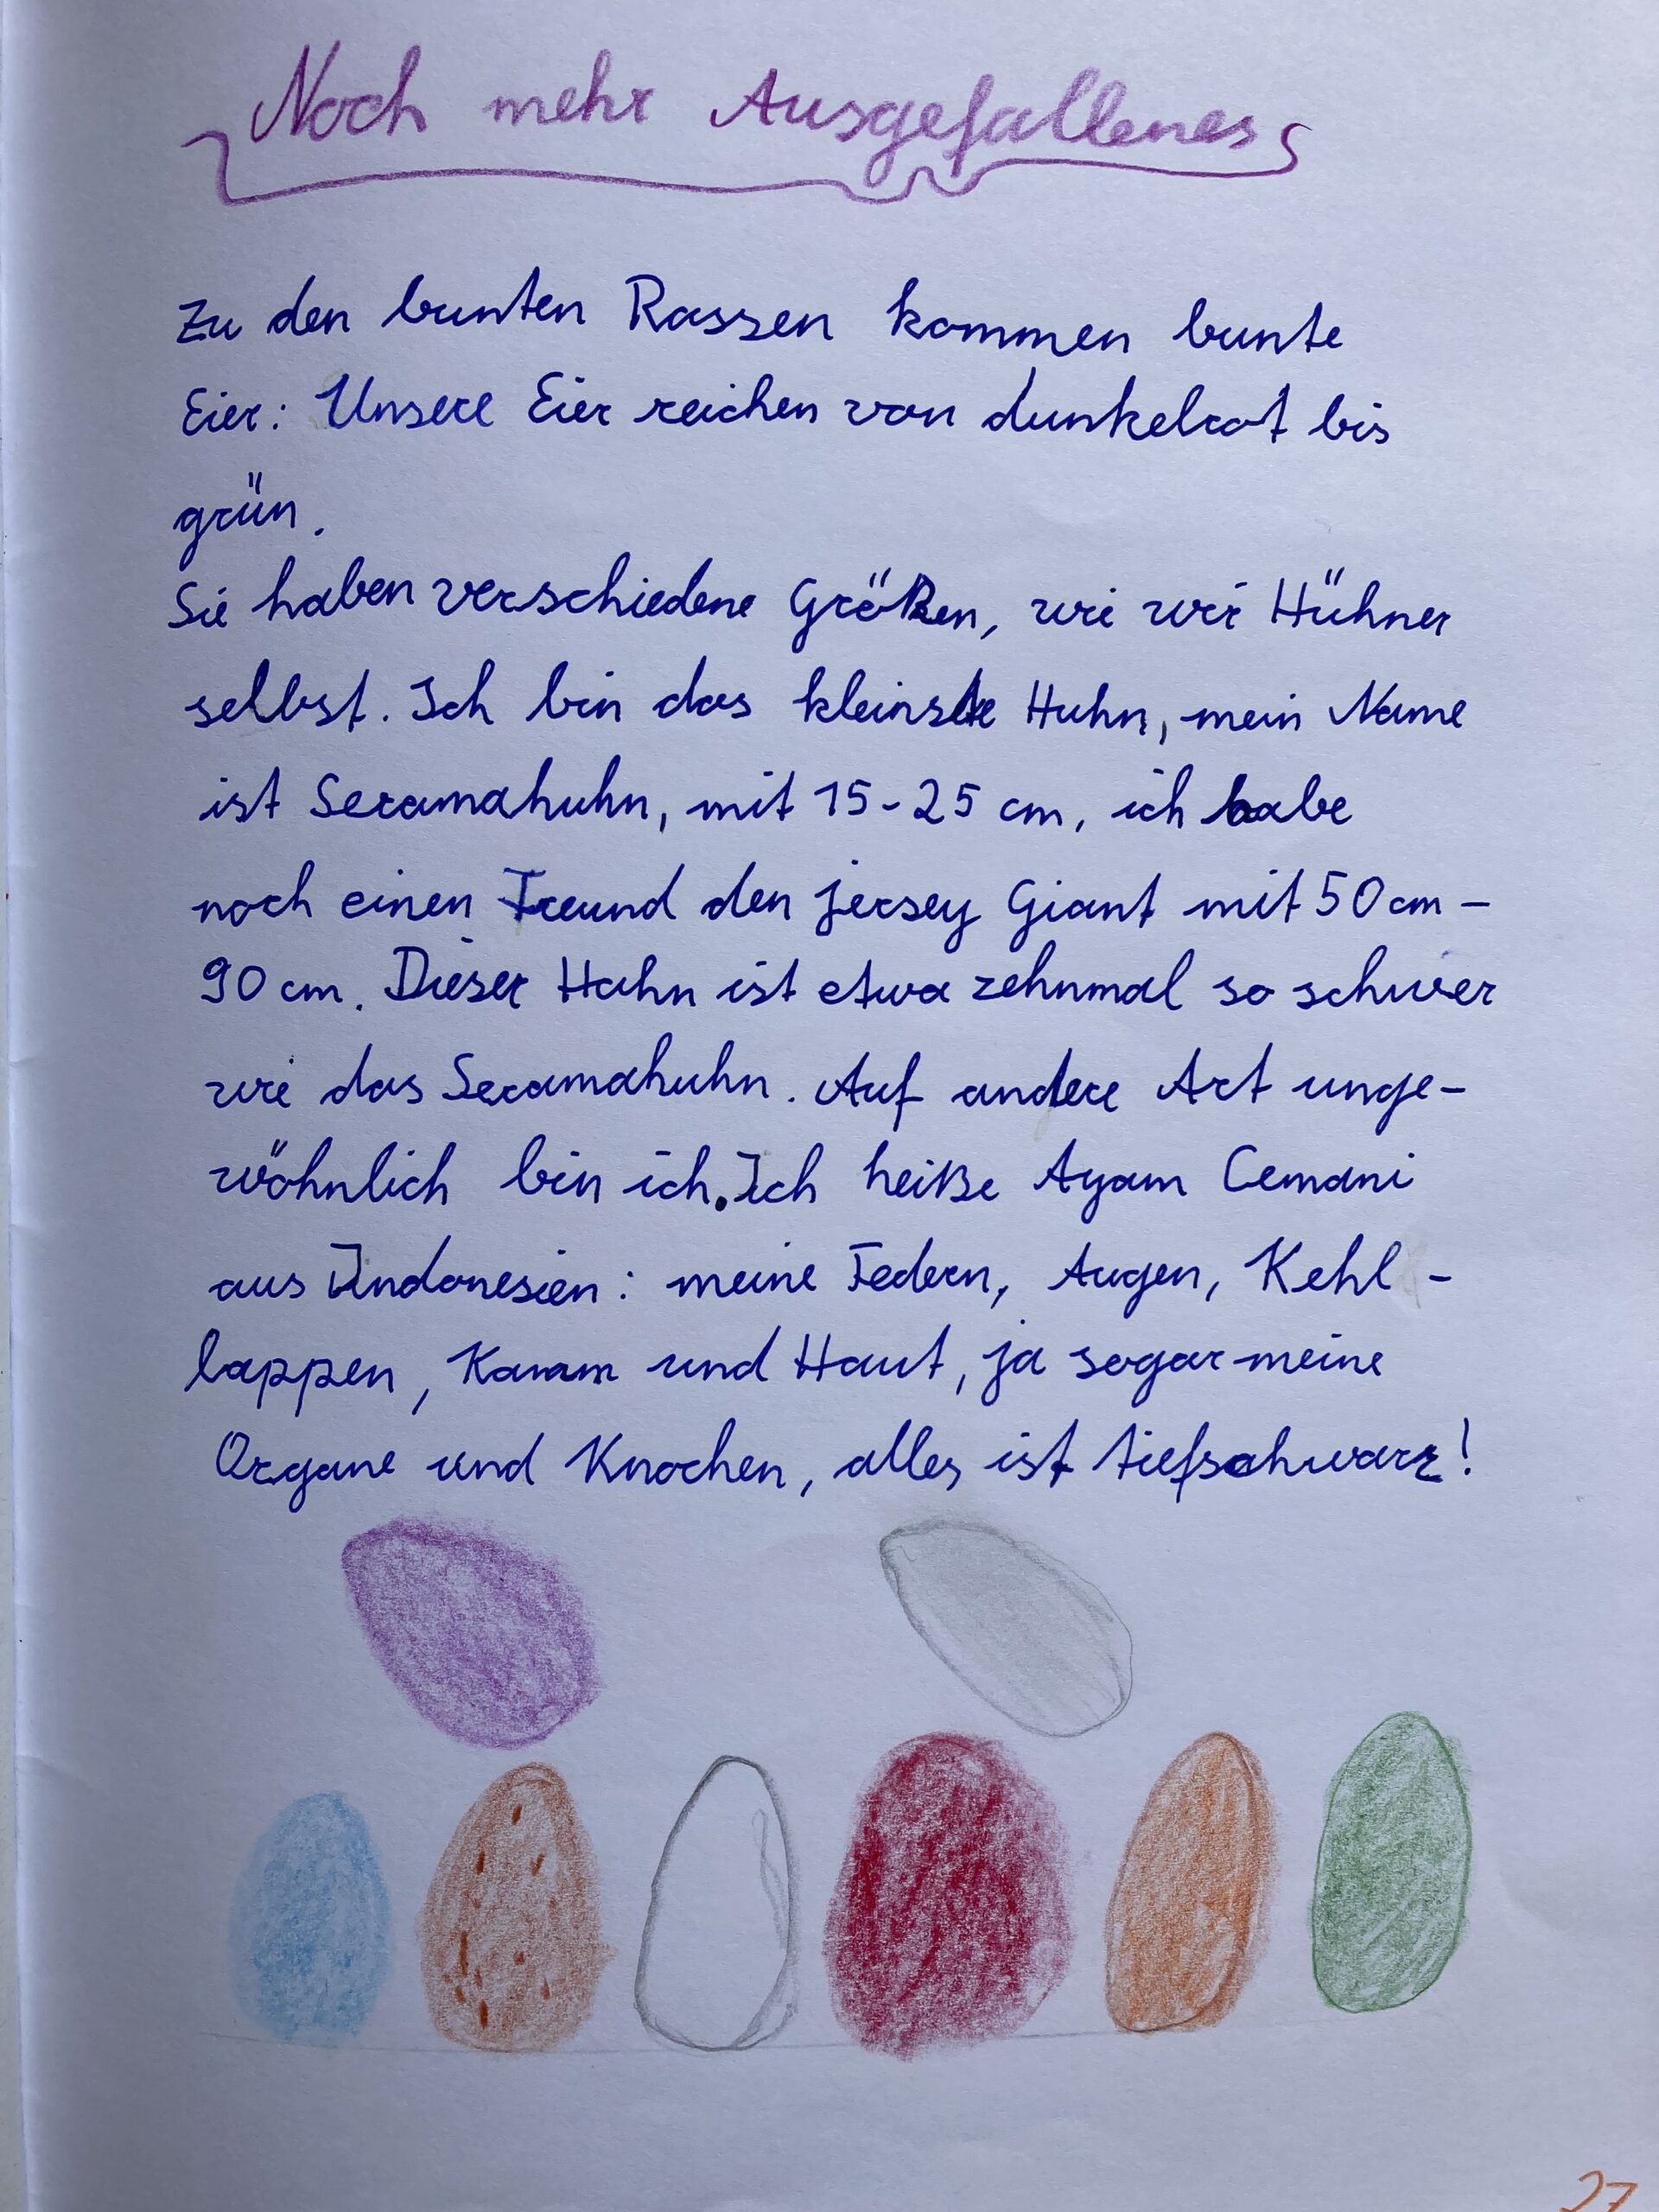 Noch mehr Ausgefallenes
Zu den bunten Rassen kommen bunte
Eier: Unsere Eier reichen von dunkelrot bis
grün.
Sie haben verschiedene Größen, wie wir Hühner
selbst. Ich bin das kleinste Huhn, mein Name
ist Seramahuhn, mit 15-25 cm, ich habe
noch einen Freund den Jersey Giant mit 50 cm -
90 cm. Dieser Hahn ist etwa zehnmal so schwer
wie das Seramahuhn. Auf andere Art unge-
wöhnlich bin ich. Ich heiße Ayam Cemani
aus Indonesien: meine Federn, Augen, Kehl-
lappen, Kamm und Haut, ja sogar meine
Organe und Knochen, alles ist tiefschwarz!
27